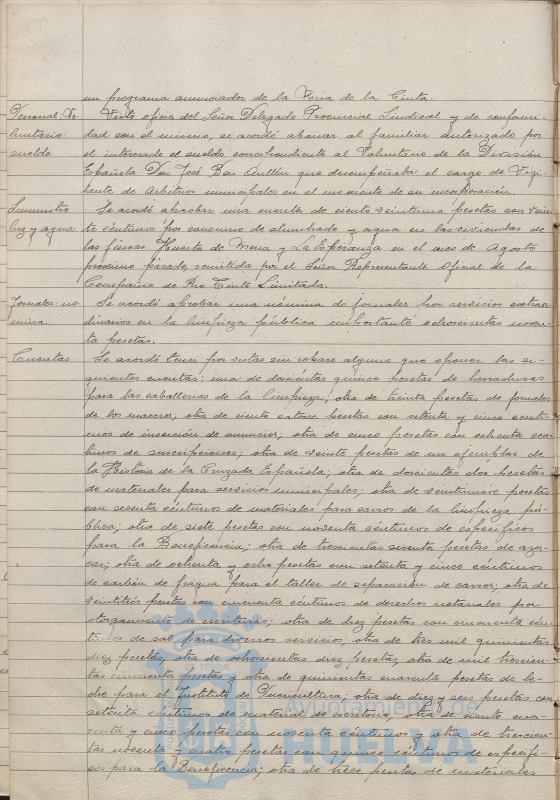 un programa anunciador de la Feria de la Cinta.
Personal: Vo-
luntario:
sueldo.
Visto oficio del Señor Delegado Provincial Sindical y de conformi-
dad con el mismo, se acordó abonar al familiar autorizado por
el interesado el sueldo correspondiente al Voluntario de la División
Española Don José Bou Guillén que desempeñaba el cargo de Vigi-
lante de Arbitrios municipales en el momento de su incorporación.
Suministro
luz y agua
Se acordó aprobar una cuenta de ciento veintiuna pesetas con vein-
te céntimos por consumo de alumbrado y agua en las viviendas de
las fincas Huerta de Mena y La Esperanza en el mes de Agosto
próximo pasado, remitida por el Señor Representante Oficial de la
Compañía de Rio Tinto Limitada.
Jornales: nó-
mina.
Se acordó aprobar una nómina de jornales por servicios extraor-
dinarios en la limpieza pública importante ochocientas noven-
ta pesetas.
Cuentas
Se acordó tener por vistas sin reparo alguno que oponer las si-
guientes cuentas: una de doscientas quince pesetas de herraduras
para las caballerías de la limpieza; otra de treinta pesetas de jornales
de los maceros; otra de ciento catorce pesetas con setenta y cinco cénti-
mos de inserción de anuncios; otra de cinco pesetas con ochenta cén-
timos de suscripciones; otra de veinte pesetas de un ejemplar de
la Historia de la Cruzada Española; otra de doscientas dos pesetas
de materiales para servicios municipales; otra de veintinueve pesetas
con sesenta céntimos de materiales para carros de la limpieza pú-
blica; otra de siete pesetas con noventa céntimos de específicos
para la Beneficencia; otra de trescientas sesenta pesetas de azú-
car; otra de ochenta y ocho pesetas con setenta y cinco céntimos
de carbón de fragua para el taller de reparación de carros; otra de
veintitrés pesetas con cincuenta céntimos de derechos notariales por
otorgamiento de escrituras; otra de diez pesetas con cincuenta cén-
timos de sal para diversos servicios; otra de tres mil quinientas
diez pesetas, otra de ochocientas diez pesetas, otra de mil trescien-
tas cincuenta pesetas y otra de quinientas cuarenta pesetas de le-
che para el Instituto de Puericultura; otra de diez y seis pesetas con
setenta céntimos de material de escritorio; otra de ciento cua-
renta y cinco pesetas con noventa céntimos y otra de trescien-
tas noventa y cuatro pesetas con quince céntimos de específi-
cos para la Beneficencia; otra de trece pesetas de materiales
Ayuntamiento de
HUELVA